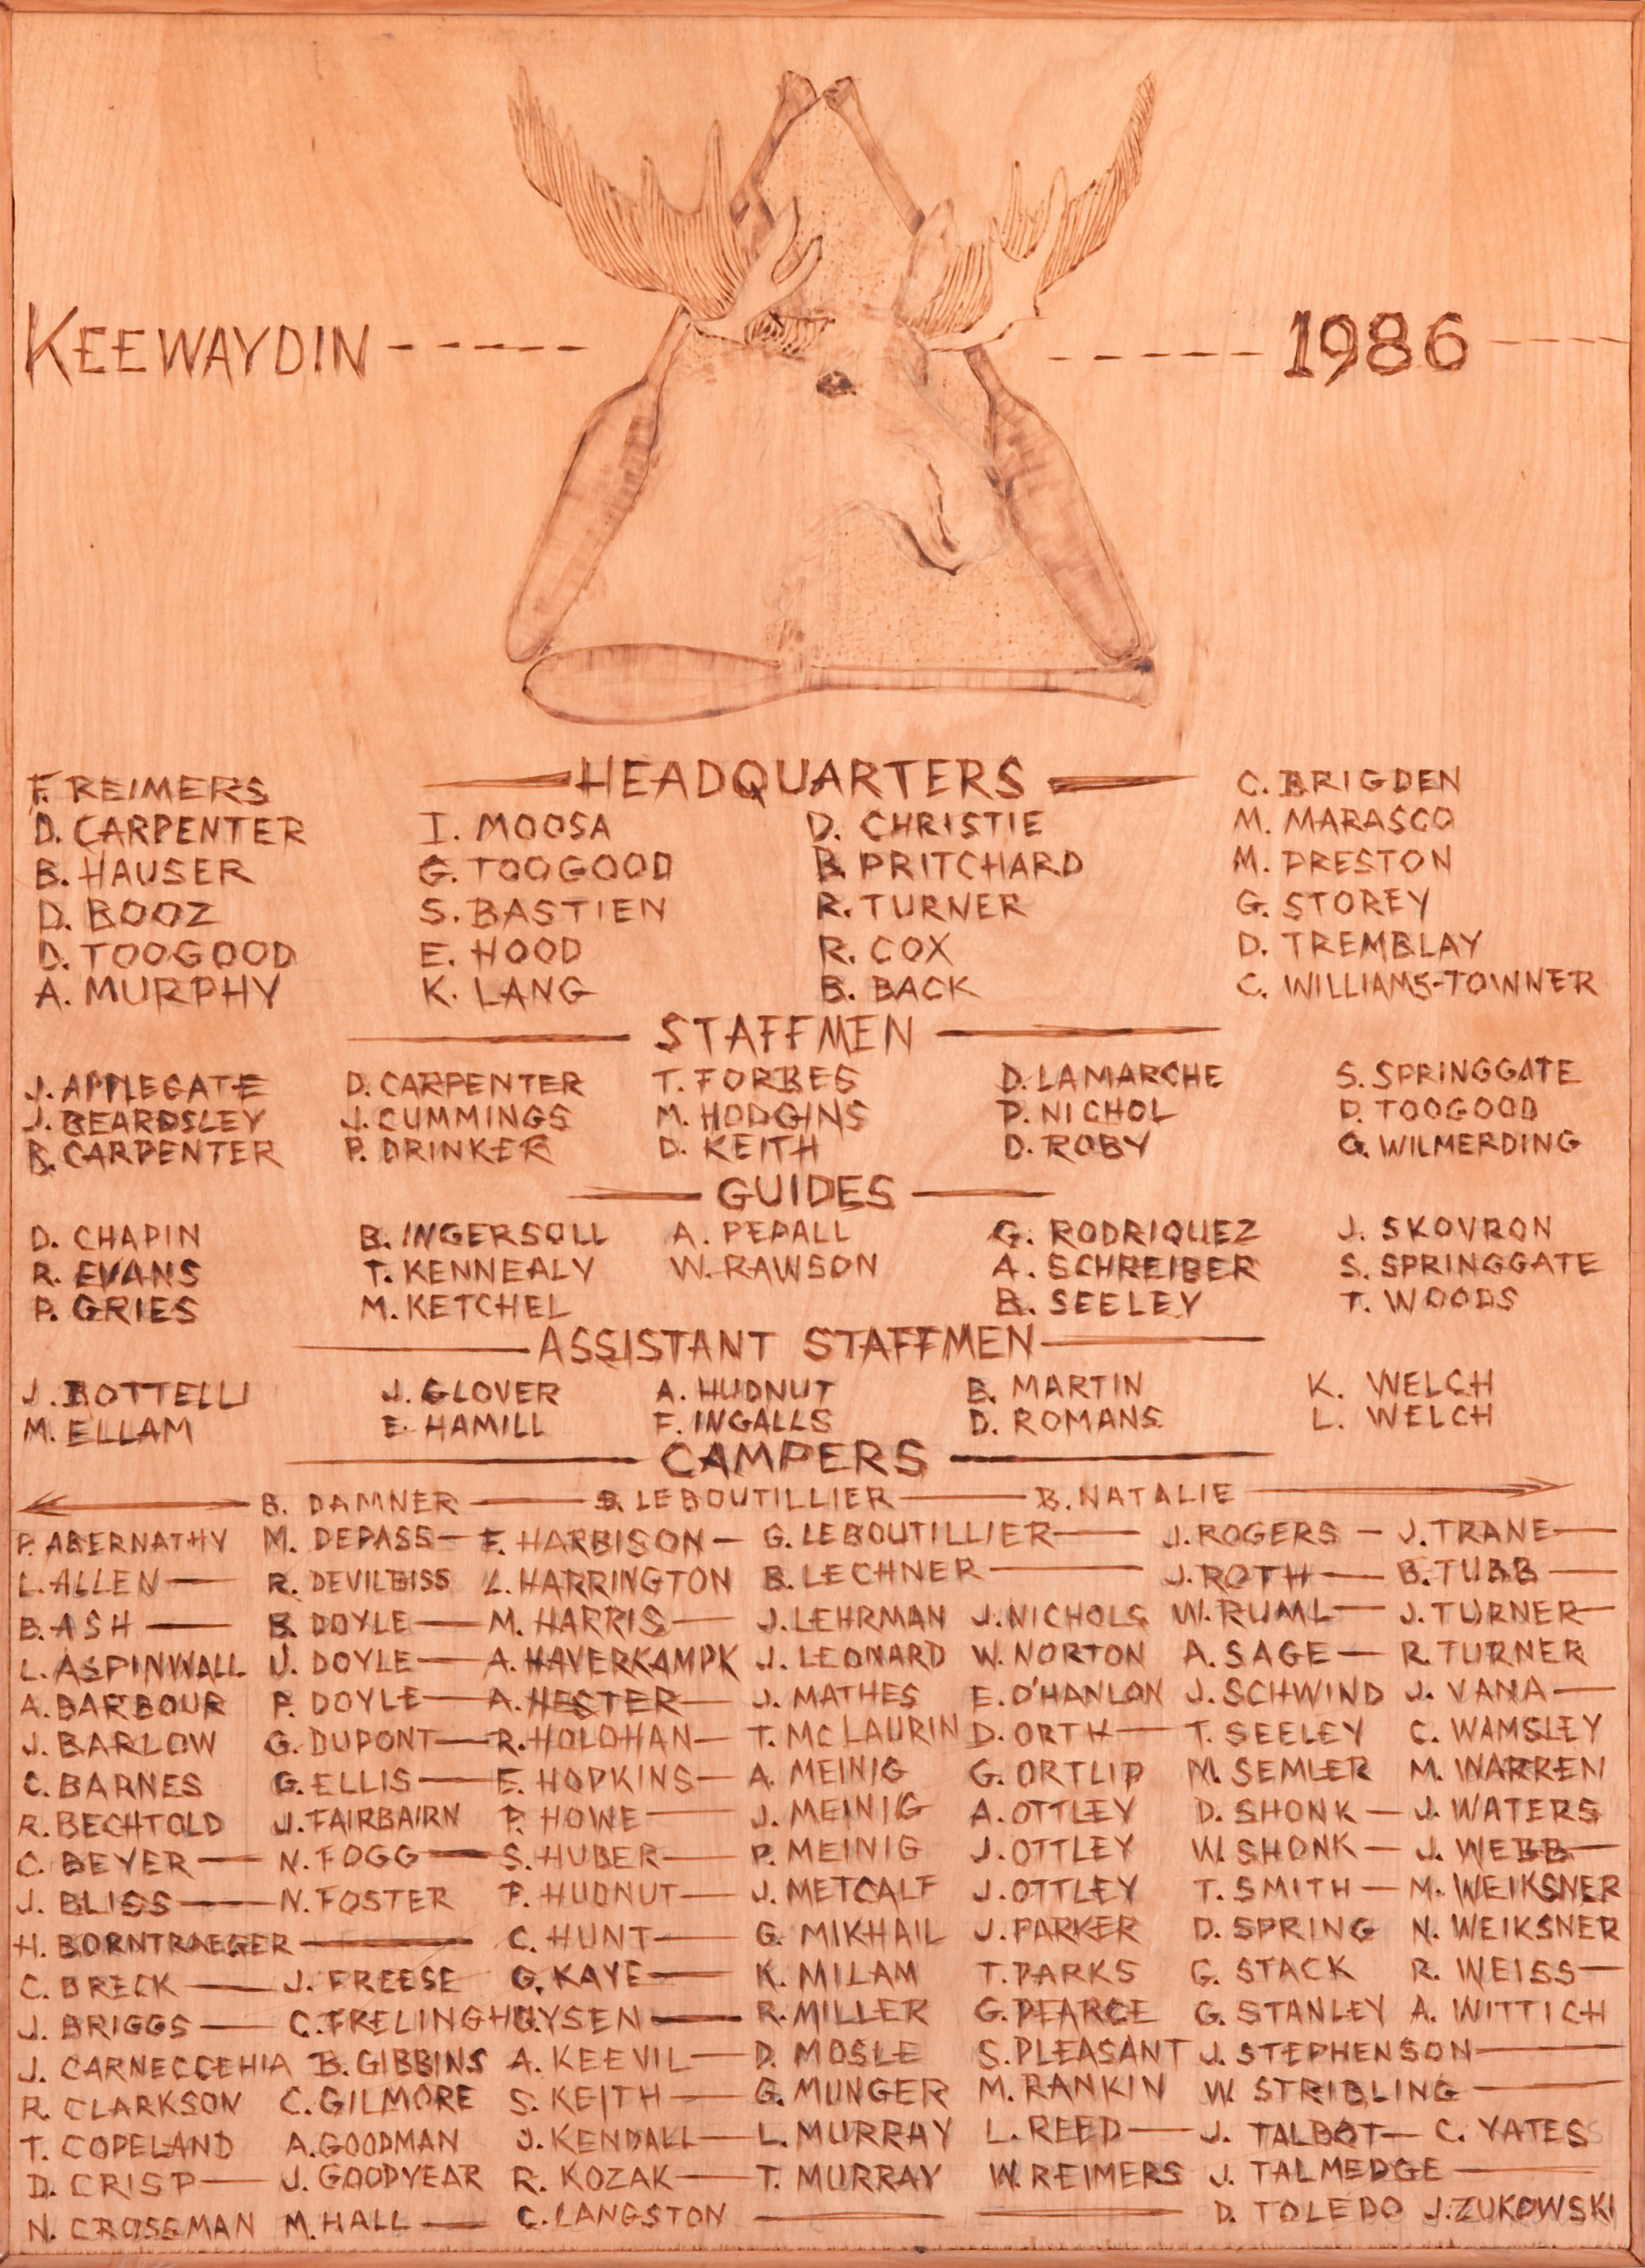 KEEWAYDIN 1986
HEADQUARTERS
F. REIMERS C. BRIGDEN
D. CARPENTER I. MOOSA D. CHRISTIE M. MARASCO
B. HAUSER G. TOOGOOD B. PRITCHARD M. PRESTON
D. BOOZ S. BASTIEN R. TURNER G. STOREY
D. TOOGOOD E. HOOD R. COX D. TREMBLAY
A. MURPHY K. LANG B. BACK C. WILLIAMS-TOWNER
STAFFMEN
J. APPLEGATE D. CARPENTER T. FORBES D. LAMARCHE S. SPRINGGATE
J. BEARDSLEY J. CUMMINGS M. HODGINS P. NICHOL D. TOOGOOD
B. CARPENTER P. DRINKER D. KEITH D. ROBY G. WILMERDING
GUIDES
D. CHAPIN B. INGERSOLL A. PEPALL G. RODRIQUEZ J. SKOVRON
R. EVANS T. KENNEALY W. RAWSON A. SCHREIBER S. SPRINGGATE
P. GRIES M. KETCHEL B. SEELEY T. WOODS
ASSISTANT STAFFMEN
J. BOTTELLI J. GLOVER A. HUDNUT B. MARTIN K. WELCH
M. ELLAM E. HAMILL F. INGALLS D. ROMANS L. WELCH
CAMPERS
B. DAMNER S. LEBOUTILLIER B. NATALIE
P. ABERNATHY M. DEPASS F. HARBISON G. LEBOUTILLIER J. ROGERS J. TRANE
L. ALLEN R. DEVILBISS L. HARRINGTON B. LECHNER J. ROTH B. TUBB
B. ASH B. DOYLE M. HARRIS J. LEHRMAN J. NICHOLS W. RUML J. TURNER
L. ASPINWALL J. DOYLE A. HAVERKAMPK J. LEONARD W. NORTON A. SAGE R. TURNER
A. BARBOUR P. DOYLE A. HESTER J. MATHES E. O'HANLON J. SCHWIND J. VANA
J. BARLOW G. DUPONT R. HOLOHAN T. MCLAURIN D. ORTH T. SEELEY C. WAMSLEY
C. BARNES G. ELLIS E. HOPKINS A. MEINIG G. ORTLIP M. SEMLER M. WARREN
R. BECHTOLD J. FAIRBAIRN P. HOWE J. MEINIG A. OTTLEY D. SHONK J. WATERS
C. BEYER N. FOGG S. HUBER P. MEINIG J. OTTLEY W. SHONK J. WEBB
J. BLISS N. FOSTER F. HUDNUT J. METCALF J. OTTLEY T. SMITH M. WEIKSNER
H. BORNTRAEGER C. HUNT G. MIKHAIL J. PARKER D. SPRING N. WEIKSNER
C. BRECK J. FREESE G. KAYE K. MILAM T. PARKS G. STACK R. WEISS
J. BRIGGS C. FRELINGHUYSEN R. MILLER G. PEARCE G. STANLEY A. WITTICH
J. CARNECCEHIA B. GIBBINS A. KEEVIL D. MOSLE S. PLEASANT J. STEPHENSON
R. CLARKSON C. GILMORE S. KEITH G. MUNGER M. RANKIN W. STRIBLING
T. COPELAND A. GOODMAN J. KENDALL L. MURRAY L. REED J. TALBOT C. YATES
D. CRISP J. GOODYEAR R. KOZAK T. MURRAY W. REIMERS J. TALMEDGE
N. CROSSMAN M. HALL C. LANGSTON D. TOLEDO J. ZUKOWSKI